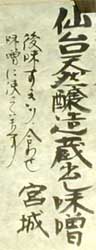 仙台発醸造蔵出し味噌
後味すっきり合わせ
味噌に使っています
宮城